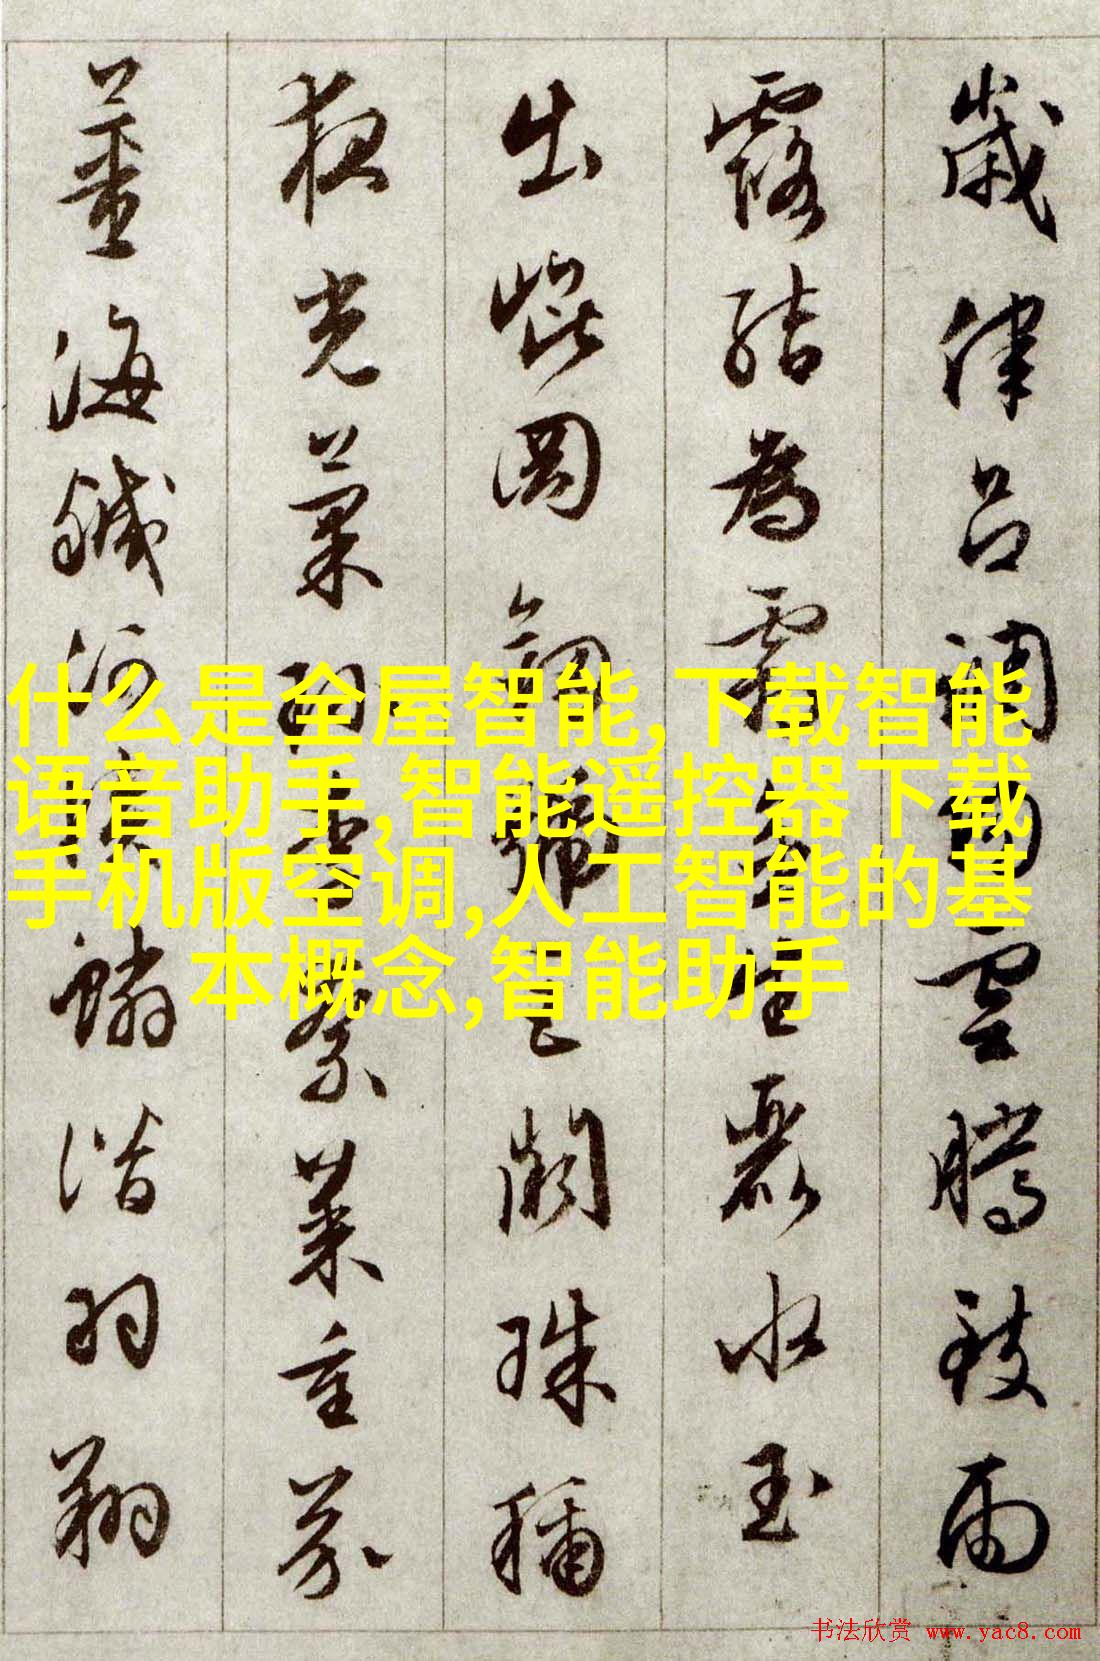 歲律呂調陽雲騰致雨
露結為霜金生麗水玉
出崐岡劍號巨闕珠稱
夜光菓珎李柰菜重芥
薑海鹹河淡鱗潛羽翔
什么是全屋智能,下载智能
语音助手,智能遥控器下载
手机版空调,人工智能的基
本概念,智能助手
书法欣赏 www.yac8.com